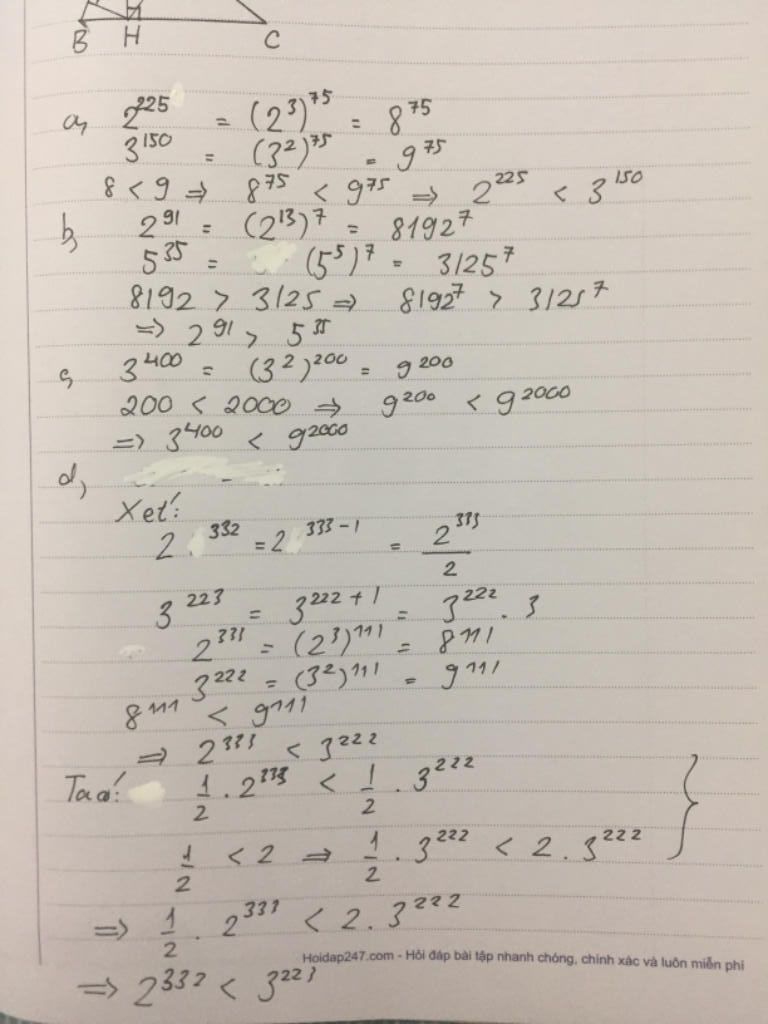 B H C
a, 2^225 = (2^3)^75 = 8^75
3^150 = (3^2)^75 = 9^75
8 < 9 ⇒ 8^75 < 9^75 ⇒ 2^225 < 3^150
b, 2^91 = (2^13)^7 = 8192^7
5^35 = (5^5)^7 = 3125^7
8192 > 3125 ⇒ 8192^7 > 3125^7
⇒ 2^91 > 5^35
c, 3^400 = (3^2)^200 = 9^200
200 < 2000 ⇒ 9^200 < 9^2000
⇒ 3^400 < 9^2000
d,
Xét:
2^332 = 2^333-1 = 2^333/2
3^223 = 3^222+1 = 3^222 . 3
2^333 = (2^3)^111 = 8^111
3^222 = (3^2)^111 = 9^111
8^111 < 9^111
⇒ 2^333 < 3^222
Ta có: 1/2 . 2^333 < 1/2 . 3^222
1/2 < 2 ⇒ 1/2 . 3^222 < 2 . 3^222 }
⇒ 1/2 . 2^333 < 2 . 3^222
Hoidap247.com - Hỏi đáp bài tập nhanh chóng, chính xác và luôn miễn phí
⇒ 2^332 < 3^223